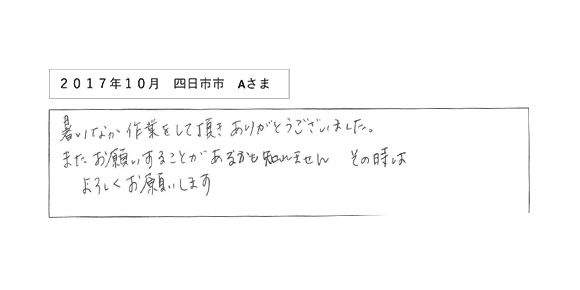 ２０１７年１０月　四日市市　Aさま
暑いなか作業をして頂きありがとうございました。
またお願いすることがあるかも知れません　その時は
よろしくお願いします